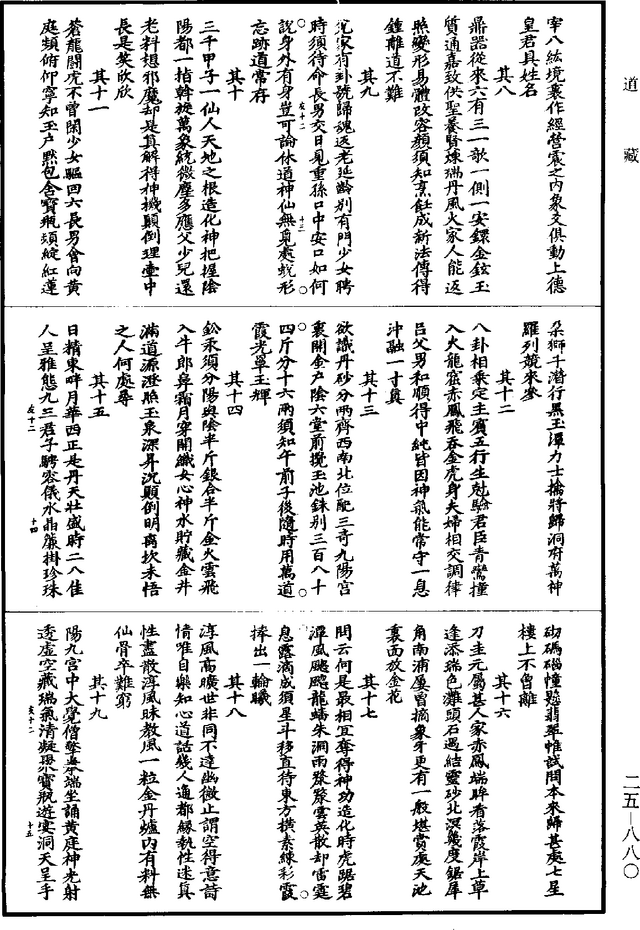 道藏
宰八紘境裏作經營震之內象爻俱動上德
皇君具姓名
其八
鼎器從來六有三一歌一側一安鐶金鉉玉
質通嘉致供聖養賢煉瑞丹風火家人能返
照變形易體改容顏須知烹飪成新法傳得
鍾離道不難
其九
家有卦號歸魂返老延齡別有門少女騁
時須待命長男交日見重孫口中安口如何
說身外有身豈可論休道神仙無覓處蛻形
忘跡道常存
其十
三千甲子一仙人天地之根造化神把握陰
陽都一指斡旋萬象統微塵多應父少兒還
老料想邪魔却是真解得神機顛倒理壺中
長是笑欣欣
其十一
蒼龍鬪虎不曾閑少女驅回六長男會向黃
庭頻俯仰寧知玉户黙包含寶瓶頻綻紅蓮
朵獅子潛行黑玉潭力士擒將歸洞府萬神
羅列競來參
其十二
八卦相乘定主賓五行生尅驗君臣青鸞撞
入火龍窟赤鳳飛吞金虎身夫婦相交調律
吕父男和順得中純皆因神氣能常守一息
沖融一寸真
其十三
欲識丹砂分兩齊西南北位配三奇九陽宮
裏開金户陰六堂前攪玉池銖別三百八十
四斤分十六兩須知午前子後隨時用萬道
霞光罩玉輝
其十四
鈆汞須分陽與陰半斤銀合半斤金火雲飛
入牛郎鼻霜月穿開織女心神水貯藏金井
滿道源澄照玉泉深昇沉顛倒明离坎未悟
之人何處尋
其十五
日精東畔月華西正是丹天壯盛時二八佳
人呈雅態九三君子騁容儀水晶簾掛珍珠
砌碼碯幢懸翡翠帷試問本來歸甚處七星
樓上不曾離
其十六
刀圭元屬甚人家赤鳳端眸看落霞岸上草
逢添瑞色灘頭石遇結靈砂北溟幾度鋸犀
角南浦屢曾摘象牙更有一般堪賞處天池
裏面放金花
其十七
問云何是最相宜奪得神功造化時虎踞碧
潭風颼颼龍蟠朱洞雨漦漦雲英散却雷霆
息露滴成須星斗移直待東方橫素練彩霞
捧出一輪曦
其十八
淳風高曠世非同不達幽微止謂空得意詩
情唯自樂知心道話幾人通都緣執性迷真
性盡散淳風昧教風一粒金丹爐内有料無
仙骨卒難窮
其十九
陽九宮中大覺僧擎拳端坐誦黃庭神光射
透虛空藏瑞氣清凝寶瓶遊宴洞天呈手
左十二
十三
左十二
十四
左十二
十五
二五－八八〇